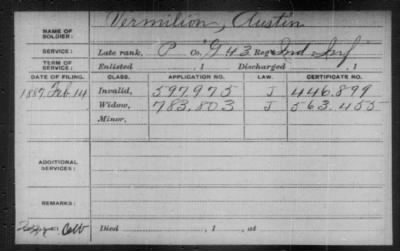 NAME OF SOLDIER: Vermilion, Austin
SERVICE: Late rank, P Co. G 43 Reg't Ind Inf
TERM OF SERVICE: Enlisted , 1 Discharged , 1
DATE OF FILING. CLASS. APPLICATION NO. LAW. CERTIFICATE NO.
1887 Feb 14 Invalid, 597.975 J 446.899
Widow, 783.803 J 563.455
Minor,
ADDITIONAL SERVICES:
REMARKS:
Died , 1 , at